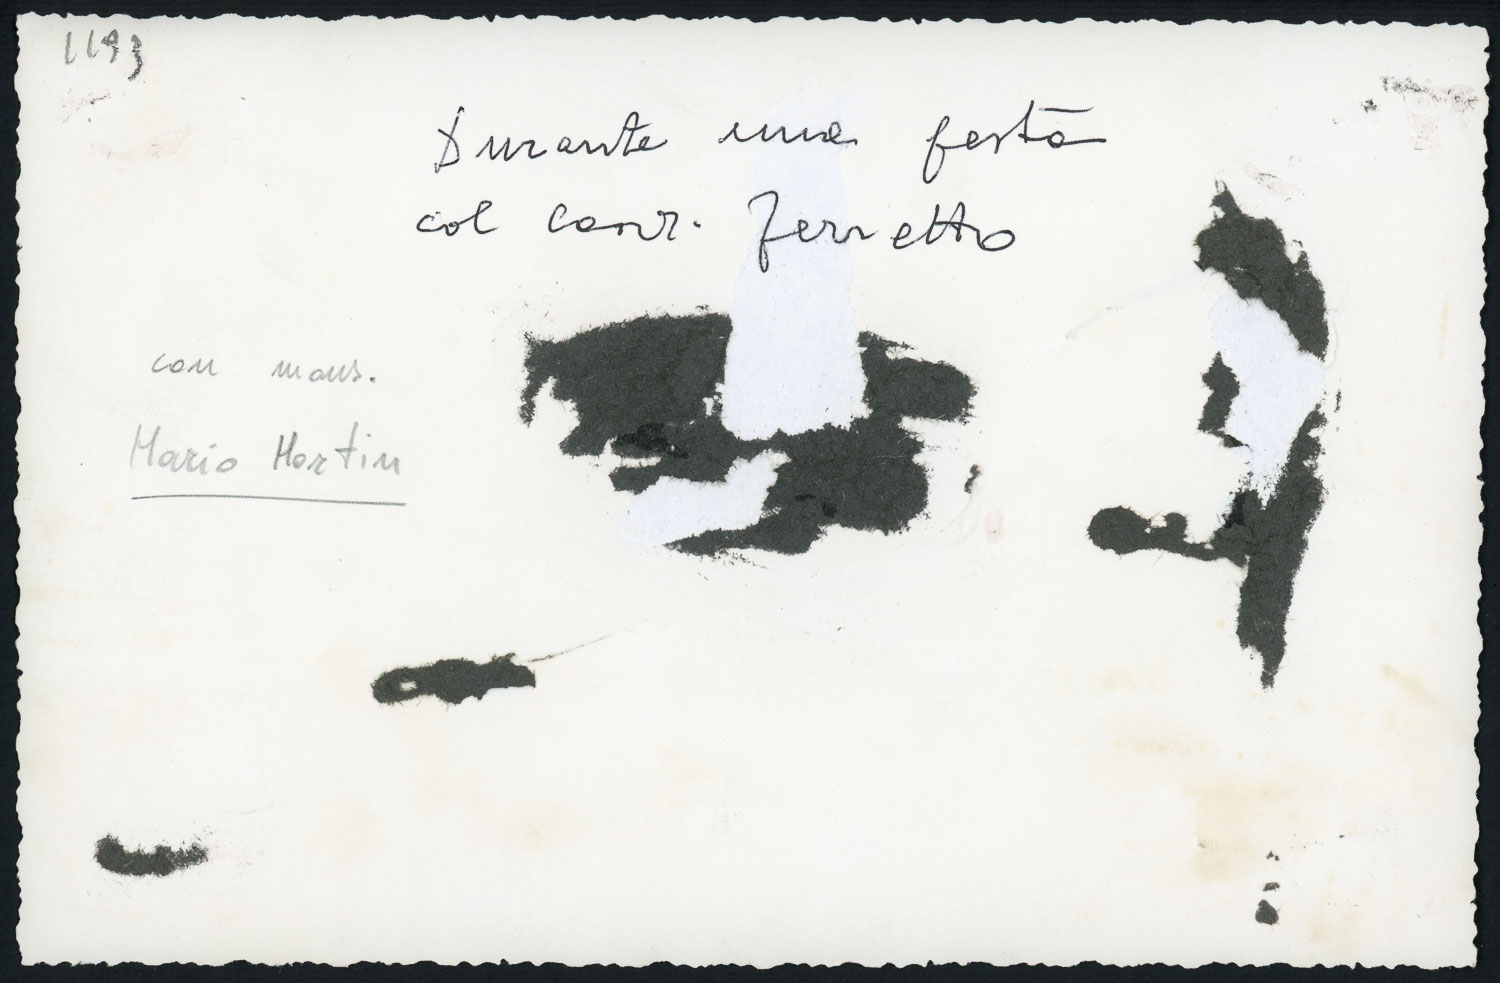 1193
Durante una festa
col cav. Ferretto
con mons.
Mario Martin